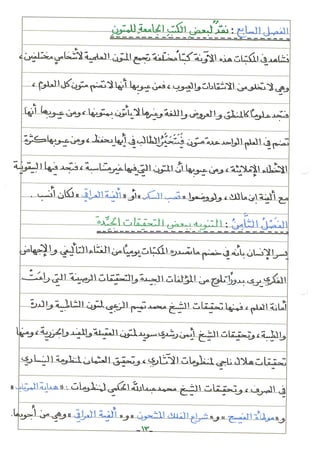 الفصل السابع : نقد لبعض الكتب الجامعة للمتون
فشاهد في المكتبات هذه الآونة كتبا مختلفة تجمع المتون العلمية لأشخاص مختلفين ،
وهي لا تخلو من الانتقادات والعيوب ، فمن عيوبها أنها لا تضم متون كل العلوم ،
فتجد علوما كالمنطق والعروض واللغة وغيرها لا يأتون بمتونها ، ومن عيوبها أنها
تضم في العلم الواحد عدة متون فيتحير الطالب في أيها يحفظ ، ومن عيوبها كثرة
الأخطاء الإملائية ، ومن عيوبها أن المتون التي فيها غير متناسبة ، فتجد فيها البيقونية
مع ألفية ابن مالك ، ولو وضعوا « قصب السكر » أو « ألفية العراقي » لكان أنسب ..
الفصل الثامن : التنويه ببعض التحقيقات الجيدة
يسر الإنسان بأنه في خضم ما تصدره المكتبات يوميا من الغثاء التأليفي والإجهاض
الفكري يرى بدورا تلوح من المؤلفات الجيدة والتحقيقات الرصينة التي راعت
أمانة العلم ، فمنها تحقيقات الشيخ محمد تميم الزعبي لمتون الشاطبية والدرة
والطيبة ، وتحقيقات الشيخ أيمن رشدي سويد لمتون العقيلة والمفيد والجزرية ، ومنها
تحقيقات هلال ناجي لمنظومات الآثاري ، وتحقيق العثمان لمنظومة النيساري
في الصرف ، وتحقيقات الشيخ محمد عبدالله الحكمي لمنظومات : « هداية المرتاب »
و « موطأة الفصيح » و « شراع الفلك المشحون » و « ألفية العراقي » وهي من أجودها .
-١٣-